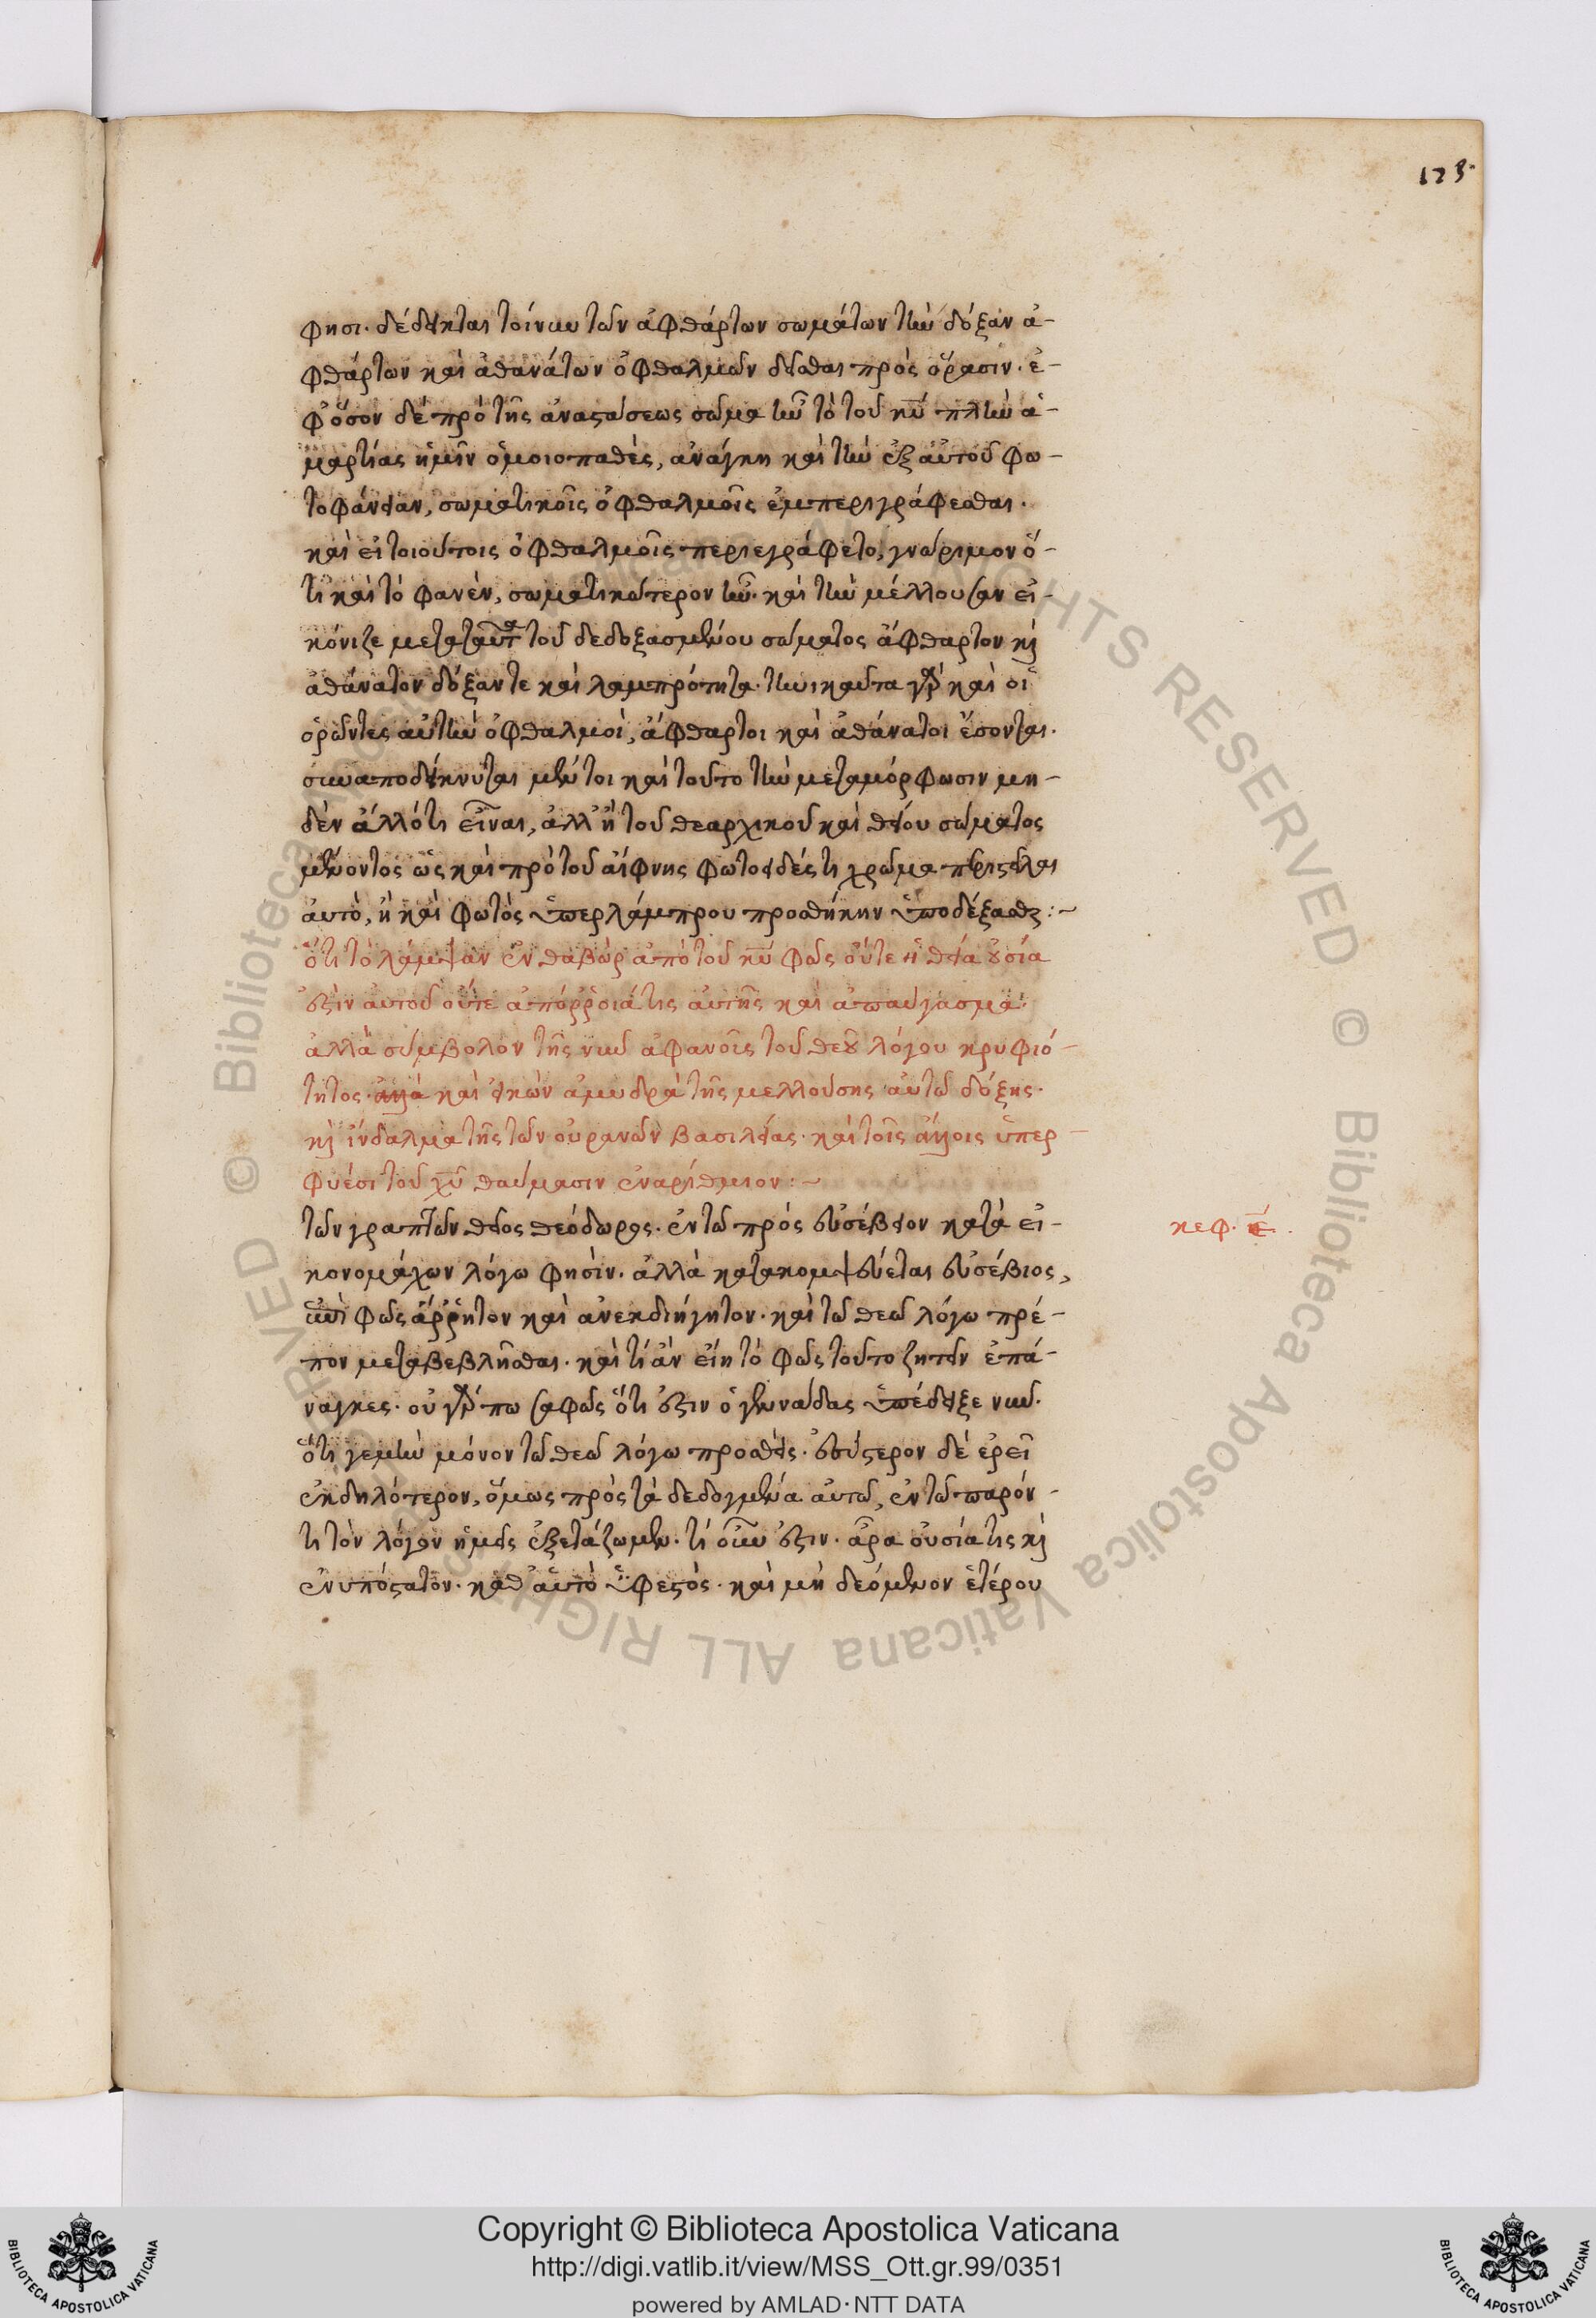 173.
φησι. δέδεικται τοίνυν τῶν ἀφθάρτων σωμάτων τὴν δόξαν ἀ-
φθάρτων καὶ ἀθανάτων ὀφθαλμῶν δεῖσθαι πρὸς ὅρασιν. ἐ-
φόσον δὲ πρὸ τῆς ἀναστάσεως σῶμα ἦν τὸ τοῦ κυ πλὴν ἁ-
μαρτίας ἡμῖν ὁμοιοπαθὲς, ἀνάγκη καὶ τὴν ἐξ αὐτοῦ φω-
τοφάνειαν, σωματικοῖς ὀφθαλμοῖς ἐμπεριγράφεσθαι.
καὶ εἰ τοιούτοις ὀφθαλμοῖς περιεγράφετο, γνώριμον ὅ-
τι καὶ τὸ φανὲν, σωματικώτερον ἦν. καὶ τὴν μέλλουσαν εἰ-
κόνιζε μεταταῦτα τοῦ δεδοξασμένου σώματος ἄφθαρτον κὶ
ἀθάνατον δόξαν τε καὶ λαμπρότητα. τηνικαῦτα γὰρ καὶ οἱ
ὁρῶντες αὐτὴν ὀφθαλμοὶ, ἄφθαρτοι καὶ ἀθάνατοι ἔσονται.
συναποδείκνυται μέντοι καὶ τοῦτο τὴν μεταμόρφωσιν μη-
δὲν ἄλλό τι εἶναι, ἀλλ' ἢ τοῦ θεαρχικοῦ καὶ θείου σώματος
μένοντος ὡς καὶ πρὸ τοῦ αἴφνης φωτοειδές τι χρῶμα περιστεῖλαι
αὐτὸ, ἢ καὶ φωτὸς ὑπερλάμπρου προσθήκην ὑποδέξασθαι:~
ὅτι τὸ λάμψαν ἐν θαβὼρ ἀπὸ τοῦ κυ φῶς οὔτε ἡ θεία οὐσία
ἐστὶν αὐτοῦ οὔτε ἀπόρροιά τις αὐτῆς καὶ ἀπαύγασμα.
ἀλλὰ σύμβολον τῆς νῦν ἀφανοῖς τοῦ θεοῦ λόγου κρυφιό-
τητος. καὶ εἰκὼν ἀμυδρὰ τῆς μελλούσης αὐτῶ δόξης.
κὶ ἴνδαλμα τῆς τῶν οὐρανῶν βασιλείας. καὶ τοῖς ἄλλοις ὑπερ-
φυέσι τοῦ χυ θαύμασιν ἐναρίθμιον:~
τῶν γραπτῶν θεῖος θεόδωρος. ἐν τῶ πρὸς εὐσέβειον κατὰ εἰ-
κονομάχων λόγω φησὶν. ἀλλὰ κατακομψεύεται εὐσέβιος,
κεφ. ιε
φῶς ἄρρητον καὶ ἀνεκδιήγητον. καὶ τῶ θεῶ λόγω πρέ-
πον μεταβεβλῆσθαι. καὶ τί ἂν εἴη τὸ φῶς τοῦτο ζητεῖν ἐπά-
ναγκες. οὐ γάρ πω σαφῶς ὅτι ἐστιν ὁ γεννάδας ὑπέδειξε νῦν.
ὅτι γεμὴν μόνον τῶ θεῶ λόγω προσθεὶς. ὕστερον δὲ ἐρεῖ
ἐκδηλότερον, ὅμως πρὸς τὰ δεδογμένα αὐτῶ, ἐν τῶ παρόν-
τι τὸν λόγον ἡμεῖς ἐξετάζωμεν. τί οὖν ἐστιν. ἆρα οὐσία τις κὶ
ἐνυπόστατον. καθ' αὑτὸ ὑφεστός. καὶ μὴ δεόμενον ἑτέρου
© Biblioteca Apostolica Vaticana ALL RIGHTS RESERVED
Copyright © Biblioteca Apostolica Vaticana
http://digi.vatlib.it/view/MSS_Ott.gr.99/0351
powered by AMLAD·NTT DATA
BIBLIOTECA APOSTOLICA VATICANA
BIBLIOTECA APOSTOLICA VATICANA